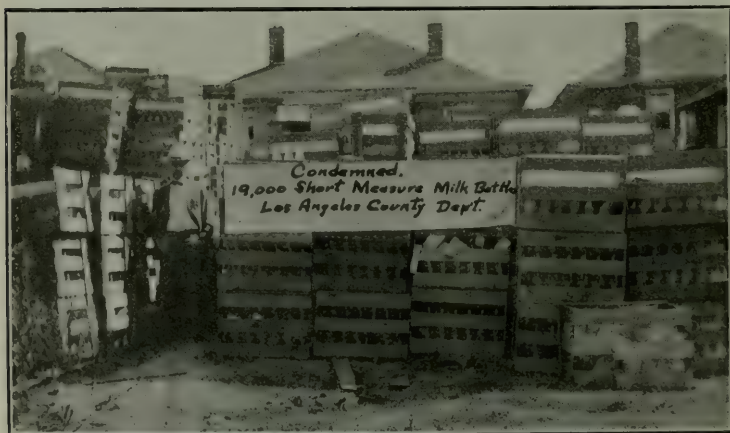 Condemned.
19,000 Short Measure Milk Bottle
Los Angeles County Dept.